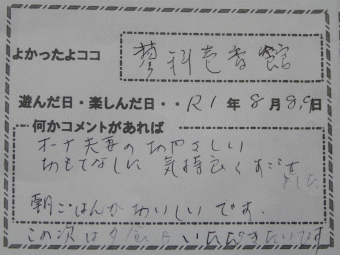 よかったよココ 蓼科壱番館
遊んだ日・楽しんだ日・・R1年8月8,9日
何かコメントがあれば
オーナ夫妻のおやさしい
おもてなしに 気持良くすごせ
ました
朝ごはんがおいしいです。
この次は夕食もいただきたいです